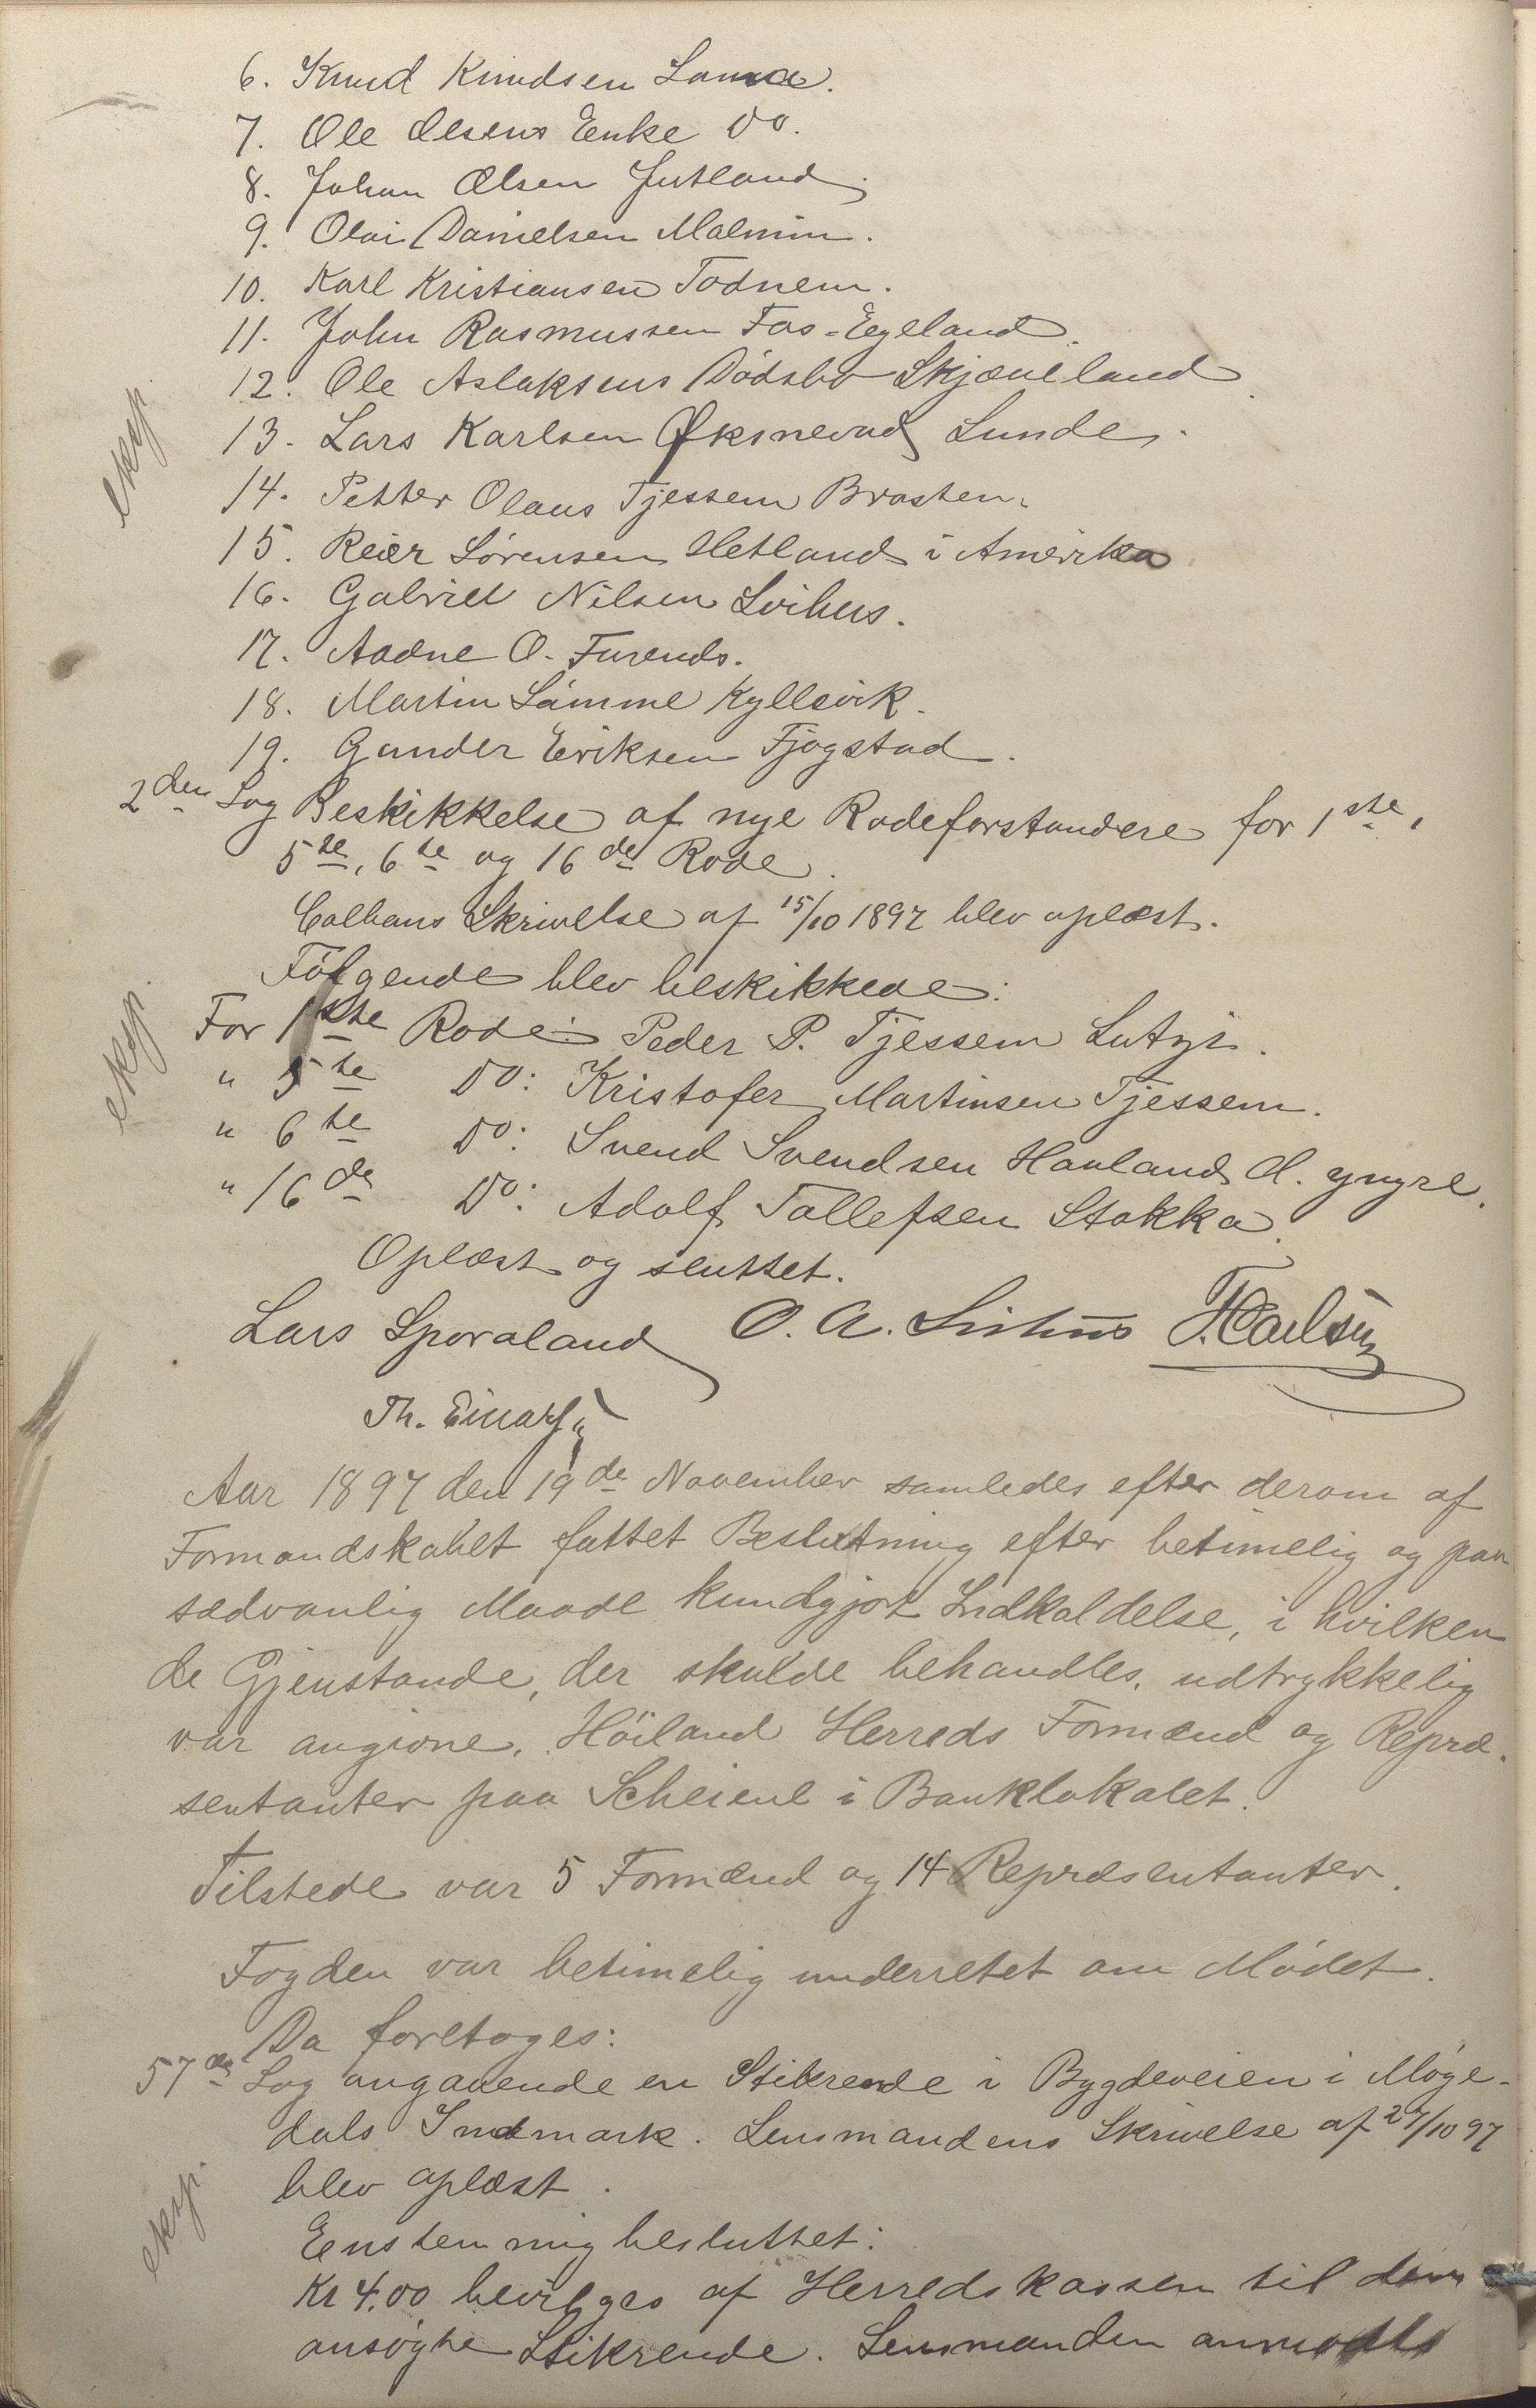 6. Knud Knudsen Lamme.
7. Ole Olsens Enke Do.
8. Johan Olsen Jutland.
9. Olai Danielsen Malmin.
10. Karl Kristiansen Todnem.
11. John Rasmussen Fos-Egeland.
12. Ole Aslaksens Dödsbo Skjæveland.
13. Lars Karlsen Øksnevad Lunde.
14. Petter Olaus Tjessem Brasten.
15. Reier Sörensen Hetland i Amerika.
16. Gabriel Nilsen Svihus.
17. Aadne O. Furends.
18. Martin Lámme Kyllesvik.
19. Gunder Eriksen Fjogstad.
eksp.
2den Sag Beskikkelse af nye Rodeforstandere for 1ste,
5te, 6te og 16de Rode.
Calhans Skrivelse af 15/10 1897 blev oplæst.
Fölgende blev beskikkede:
eksp.
For 1ste Rode: Peder P. Tjessem Lutsi.
" 5te Do: Kristofer Martinsen Tjessem.
" 6te Do: Svend Svendsen Hauland d. yngre.
" 16de Do: Adolf Tollefsen Stokka.
Oplæst og sluttet.
Lars Sporaland O. A. Svihus T. Carlsen
Th. Einarsen
Aar 1897 den 19de November samledes efter derom af
Formandskabet fattet Beslutning efter betimelig og paa
sædvanlig Maade kundgjort Indkaldelse, i hvilken
de Gjenstande, der skulde behandles, udtrykkelig
var angivne, Höiland Herreds Formænd og Repræ-
sentanter paa Scheiene i Banklokalet.
Tilstede var 5 Formænd og 14 Repræsentanter.
Fogden var betimelig underrettet om Mödet.
Da foretoges:
57de Sag angaaende en Stikrende i Bygdeveien i Møge-
dals Indmark. Lensmandens Skrivelse af 27/10 97
blev oplæst.
eksp.
Eenstemmig besluttet:
Kr 4.00 bevilges af Herredskassen til den
ansögte Stikrende. Lensmanden anmodes